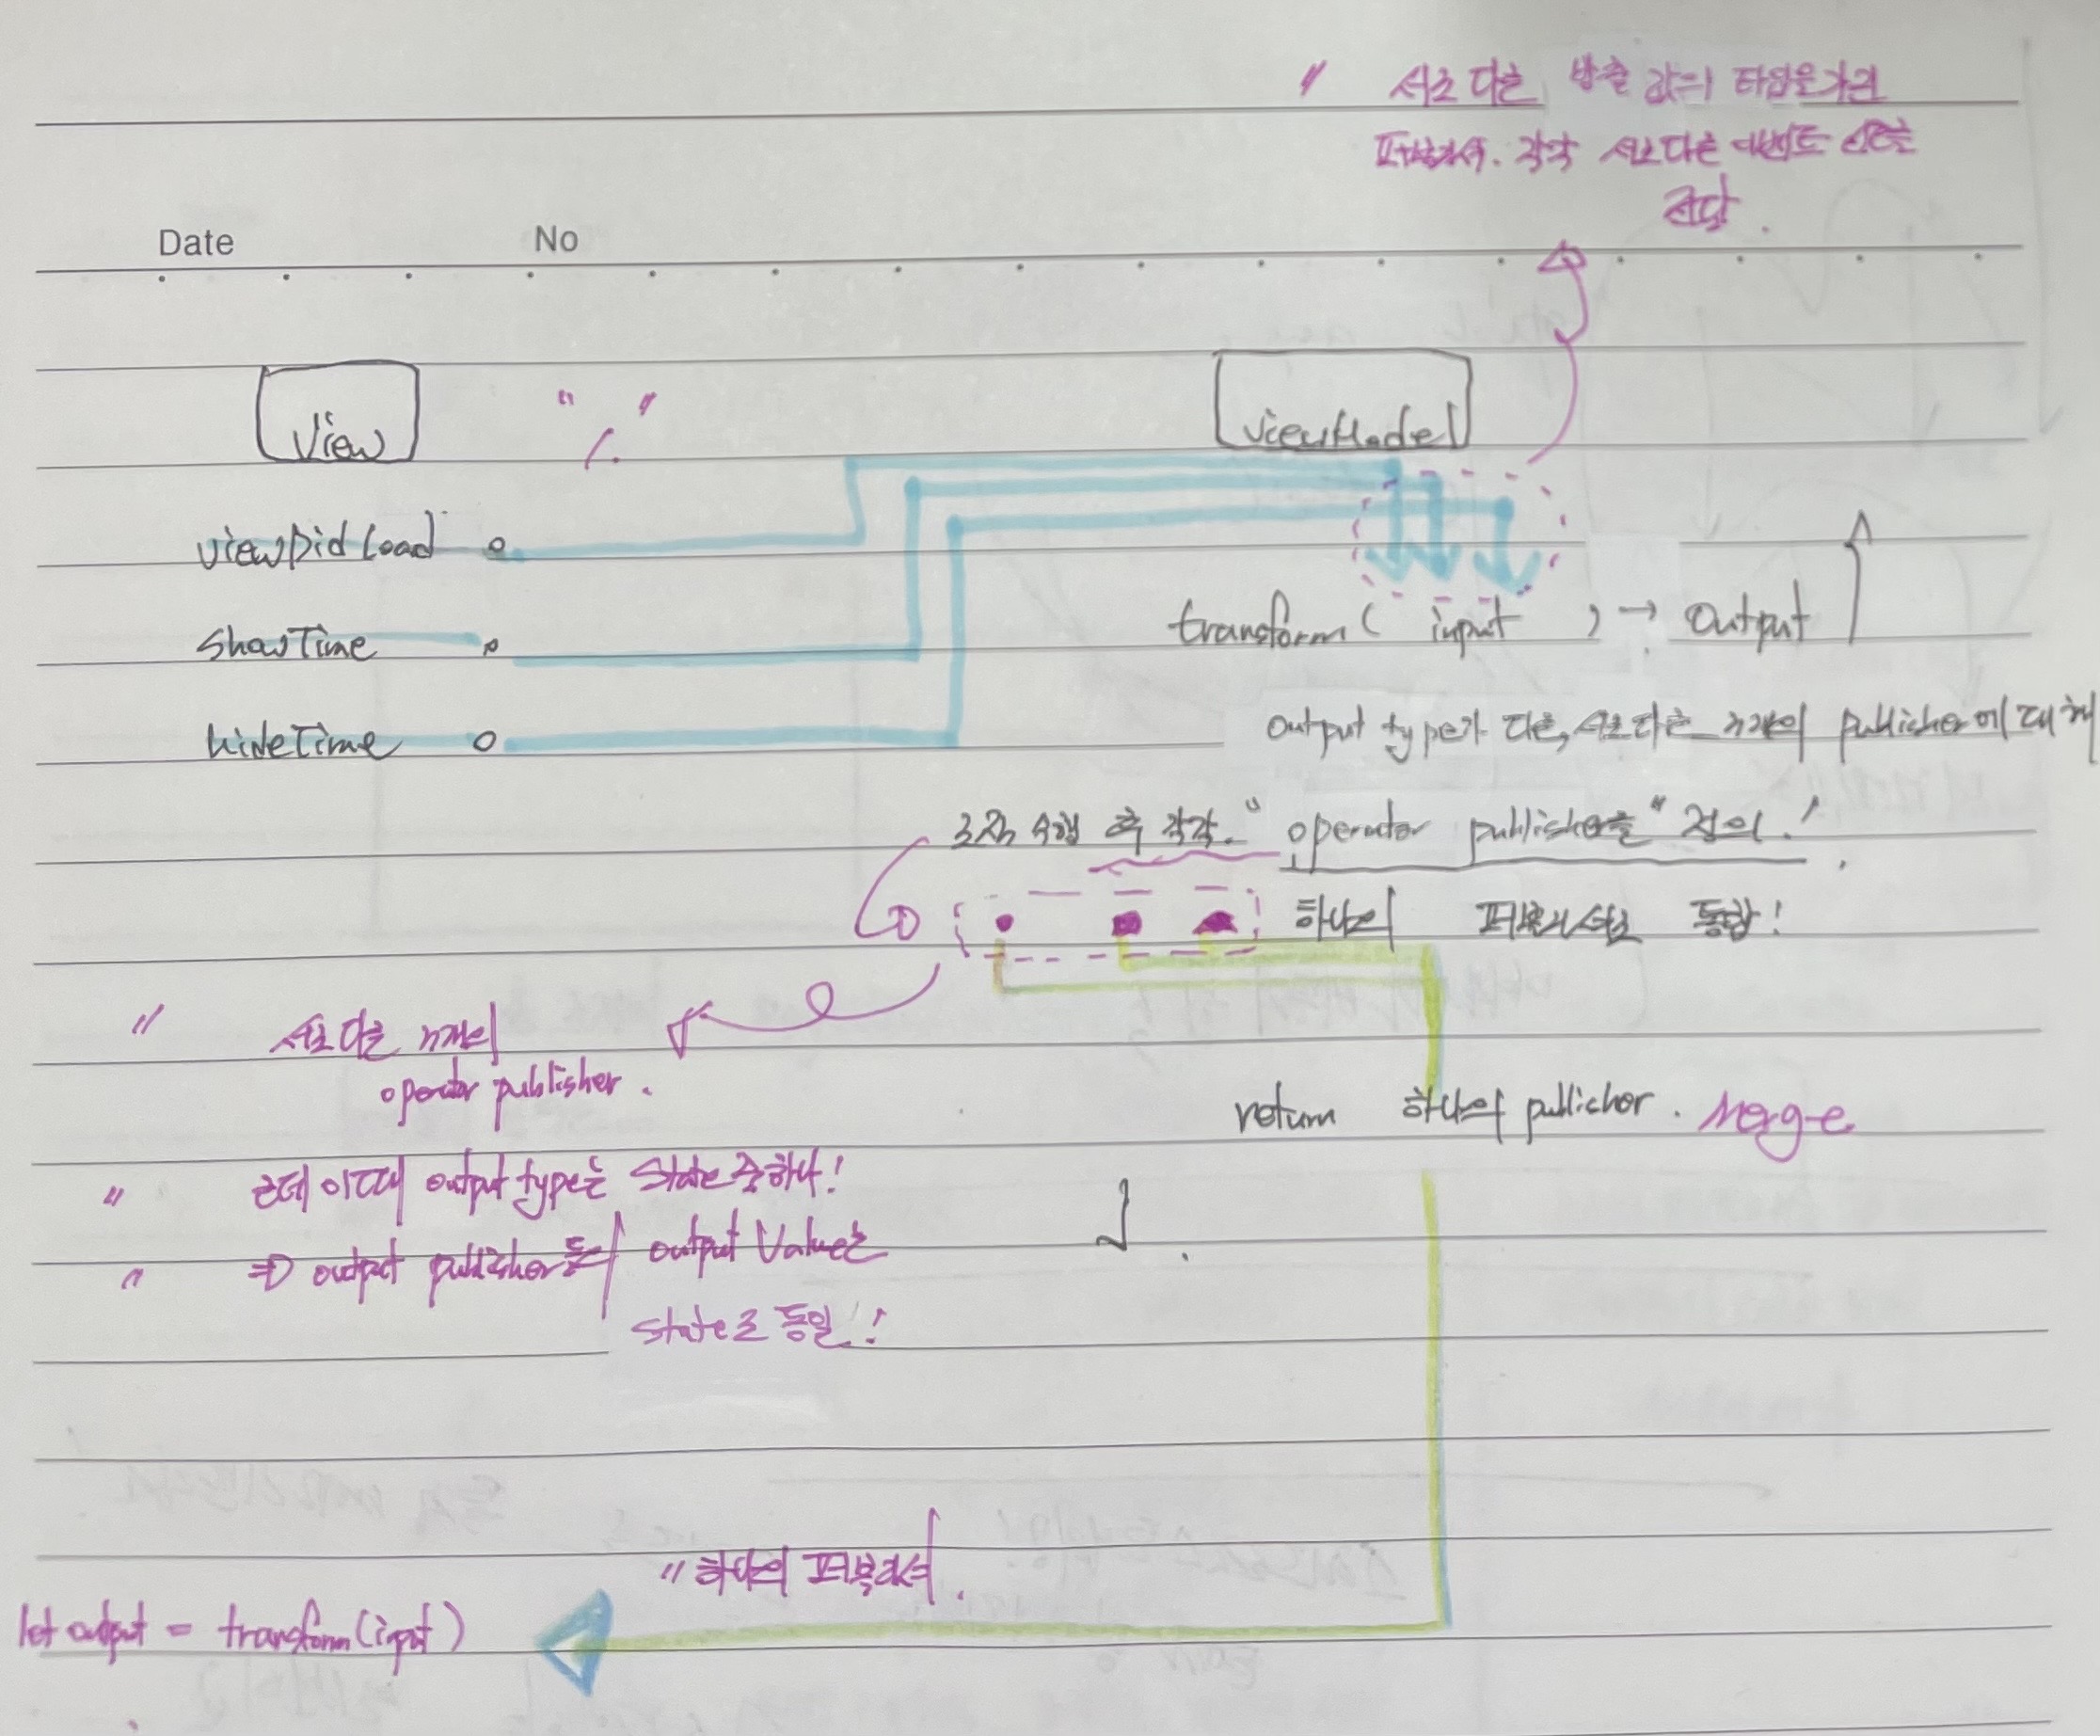 서로 다른 방출 값의 타입을 가진
퍼블리셔. 각각 서로 다른 이벤트 신호를
전달.
Date No
View
viewModel
viewDidLoad
showTime
transform( input ) → output
hideTime
output type가 다른, 서로 다른 n개의 publicher에 대해
로직 수행 후 각각. "operator publisher을" 정의.!
하나의 퍼블리셔로 통합!
서로 다른 n개의
operator publisher.
return 하나의 publicher. Merge
근데 이때 output type는 State 중 하나!
⇒ output publisher들 output Value는
State로 동일!
"하나의 퍼블리셔.
let output = transform(input)